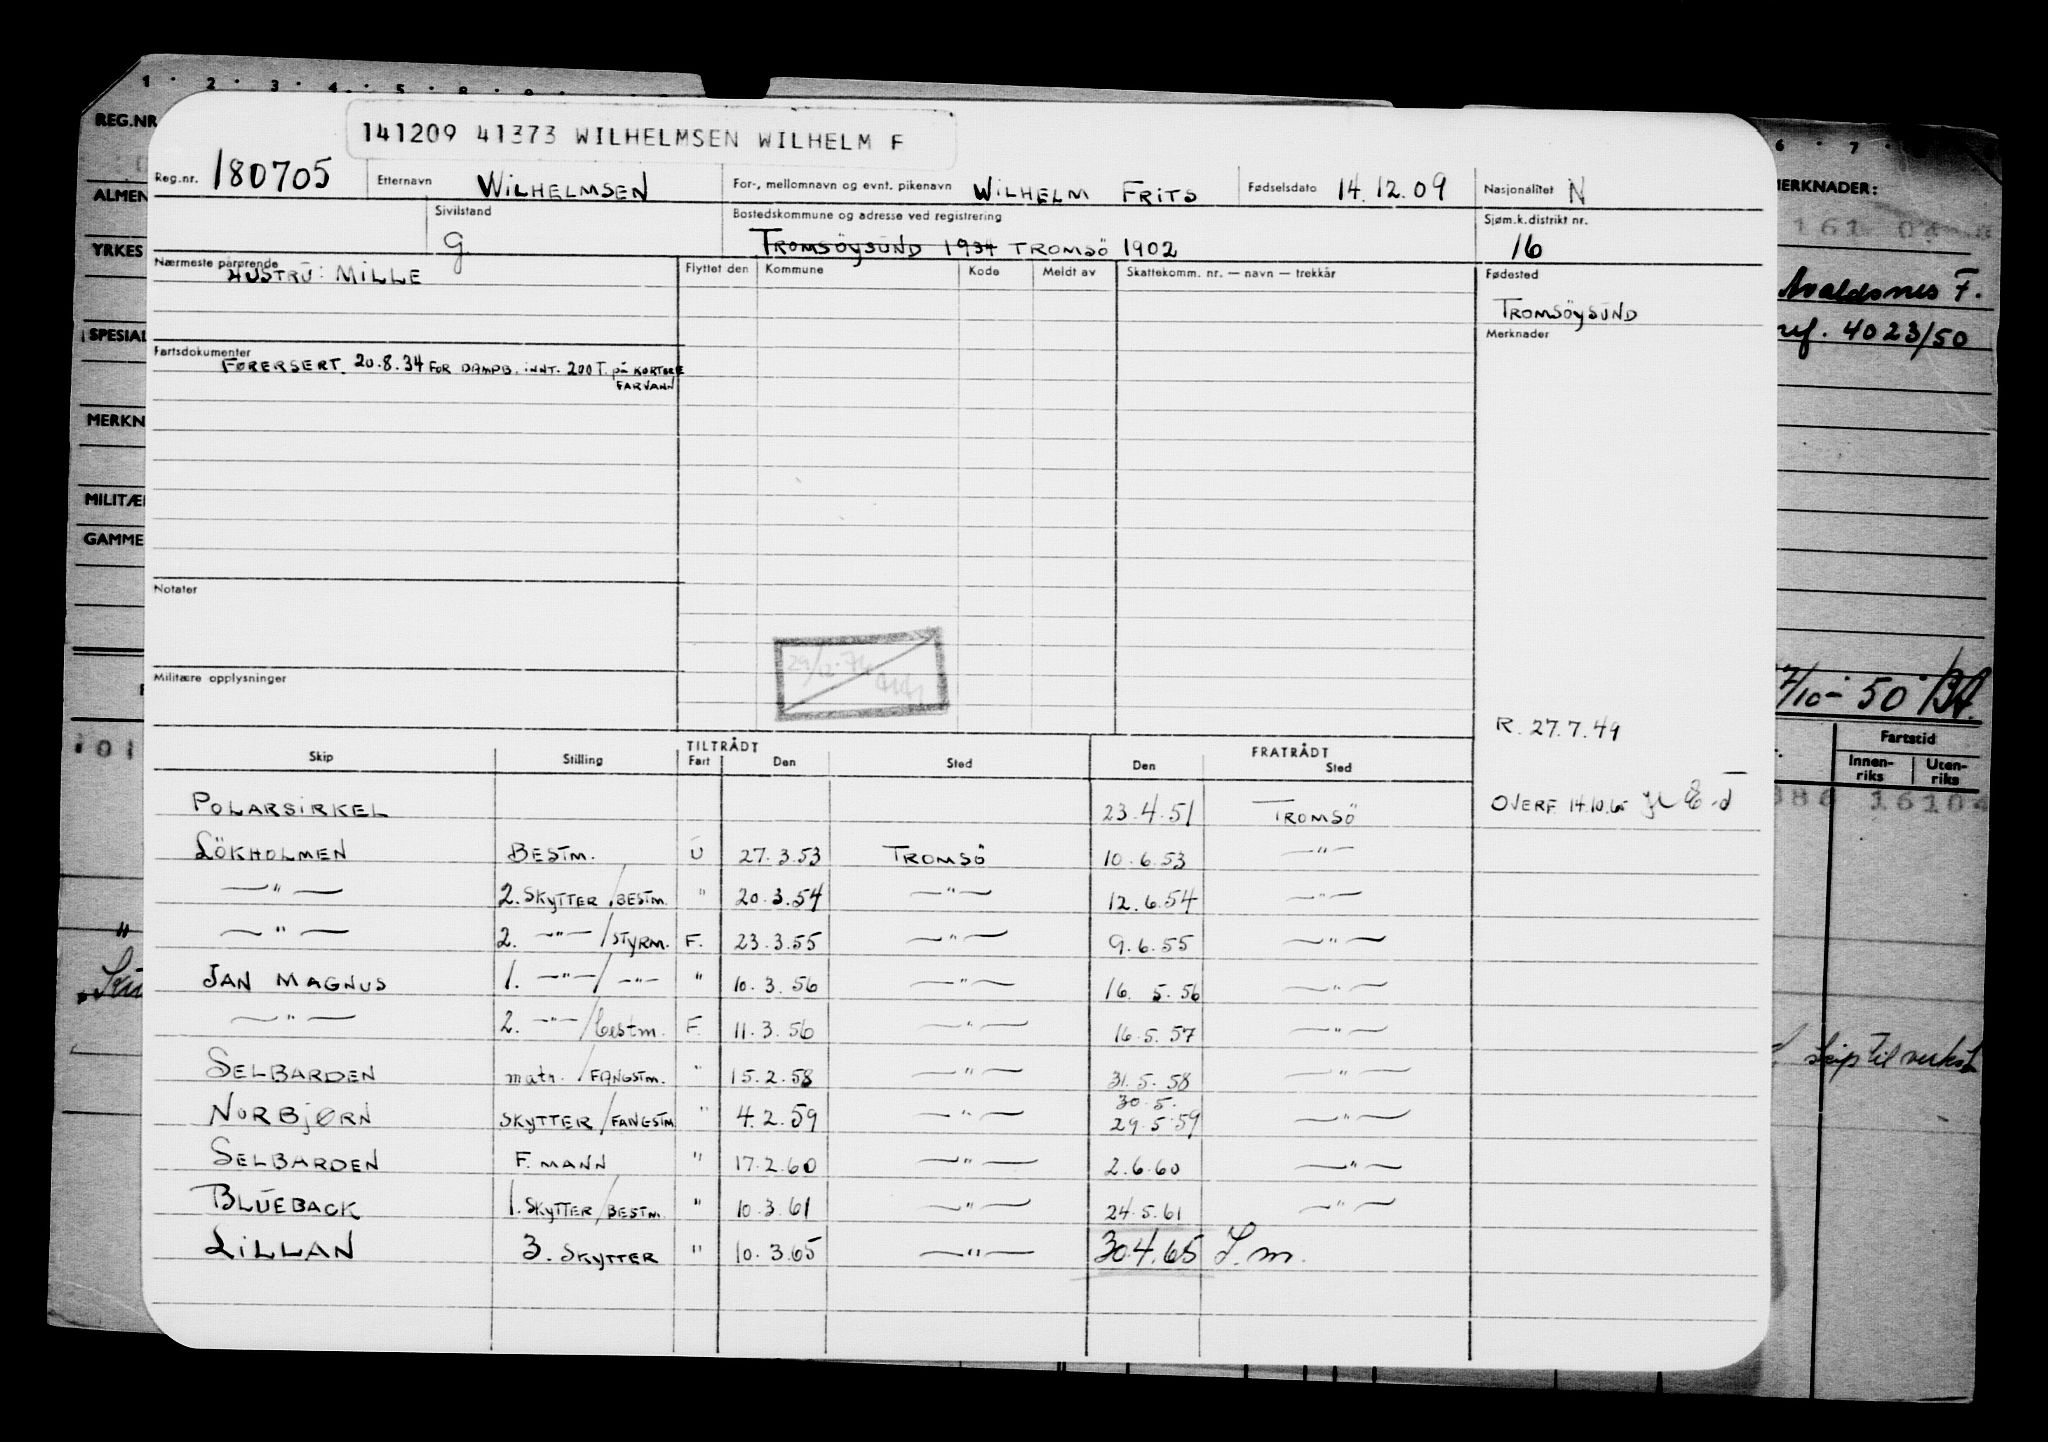 1 2 3 4 5 8 9
REG.NR
ALMEN
YRKES
SPESIAL
MERKN
MILITÆR
GAMME
101
6 7
MERKNADER:
161
Avaldsnes F.
4023/50
7/10-50
Fartstid
Innen-riks Uten-riks
386 16104
Skip til verkst
141209 41373 WILHELMSEN WILHELM F
Reg.nr. 180705 Etternavn WILHELMSEN For-, mellomnavn og evnt. pikenavn WILHELM FRITS Fødselsdato 14.12.09 Nasjonalitet N
Sivilstand G Bostedskommune og adresse ved registrering TROMSÖYSUND 1934 TROMSÖ 1902 Sjøm.k.distrikt nr. 16
Nærmeste pårørende HUSTRU: MILLE Flyttet den Kommune Kode Meldt av Skattekomm. nr. — navn — trekkår Fødested
TROMSÖYSUND
Merknader
Fartsdokumenter
FØRERSERT. 20.8.34 FOR DAMPB. INNT. 200 T. på KORTERE
FARVANN
Notater
29/12-74
Militære opplysninger
R. 27.7.49
Skip Stilling TILTRÅDT Fart Den Sted FRATRÅDT Den Sted
POLARSIRKEL 23.4.51 TROMSÖ OVERF. 14.10.65
LÖKHOLMEN BESTM. U 27.3.53 TROMSÖ 10.6.53 —"—
—"— 2. SKYTTER/BESTM. " 20.3.54 —"— 12.6.54 —"—
—"— 2. —"—/STYRM. F. 23.3.55 —"— 9.6.55 —"—
JAN MAGNUS 1. —"—/—"— " 10.3.56 —"— 16.5.56 —"—
—"— 2. —"—/bestm. F. 11.3.56 —"— 16.5.57 —"—
SELBARDEN matr./FANGSTM. " 15.2.58 —"— 31.5.58 —"—
30.5.
NORBJØRN SKYTTER/FANGSTM " 4.2.59 —"— 29.5.59 —"—
SELBARDEN F. MANN " 17.2.60 —"— 2.6.60 —"—
BLUEBACK 1. SKYTTER/BESTM. " 10.3.61 —"— 24.5.61 —"—
LILLAN 3. SKYTTER " 10.3.65 —"— 30.4.65 S.m.